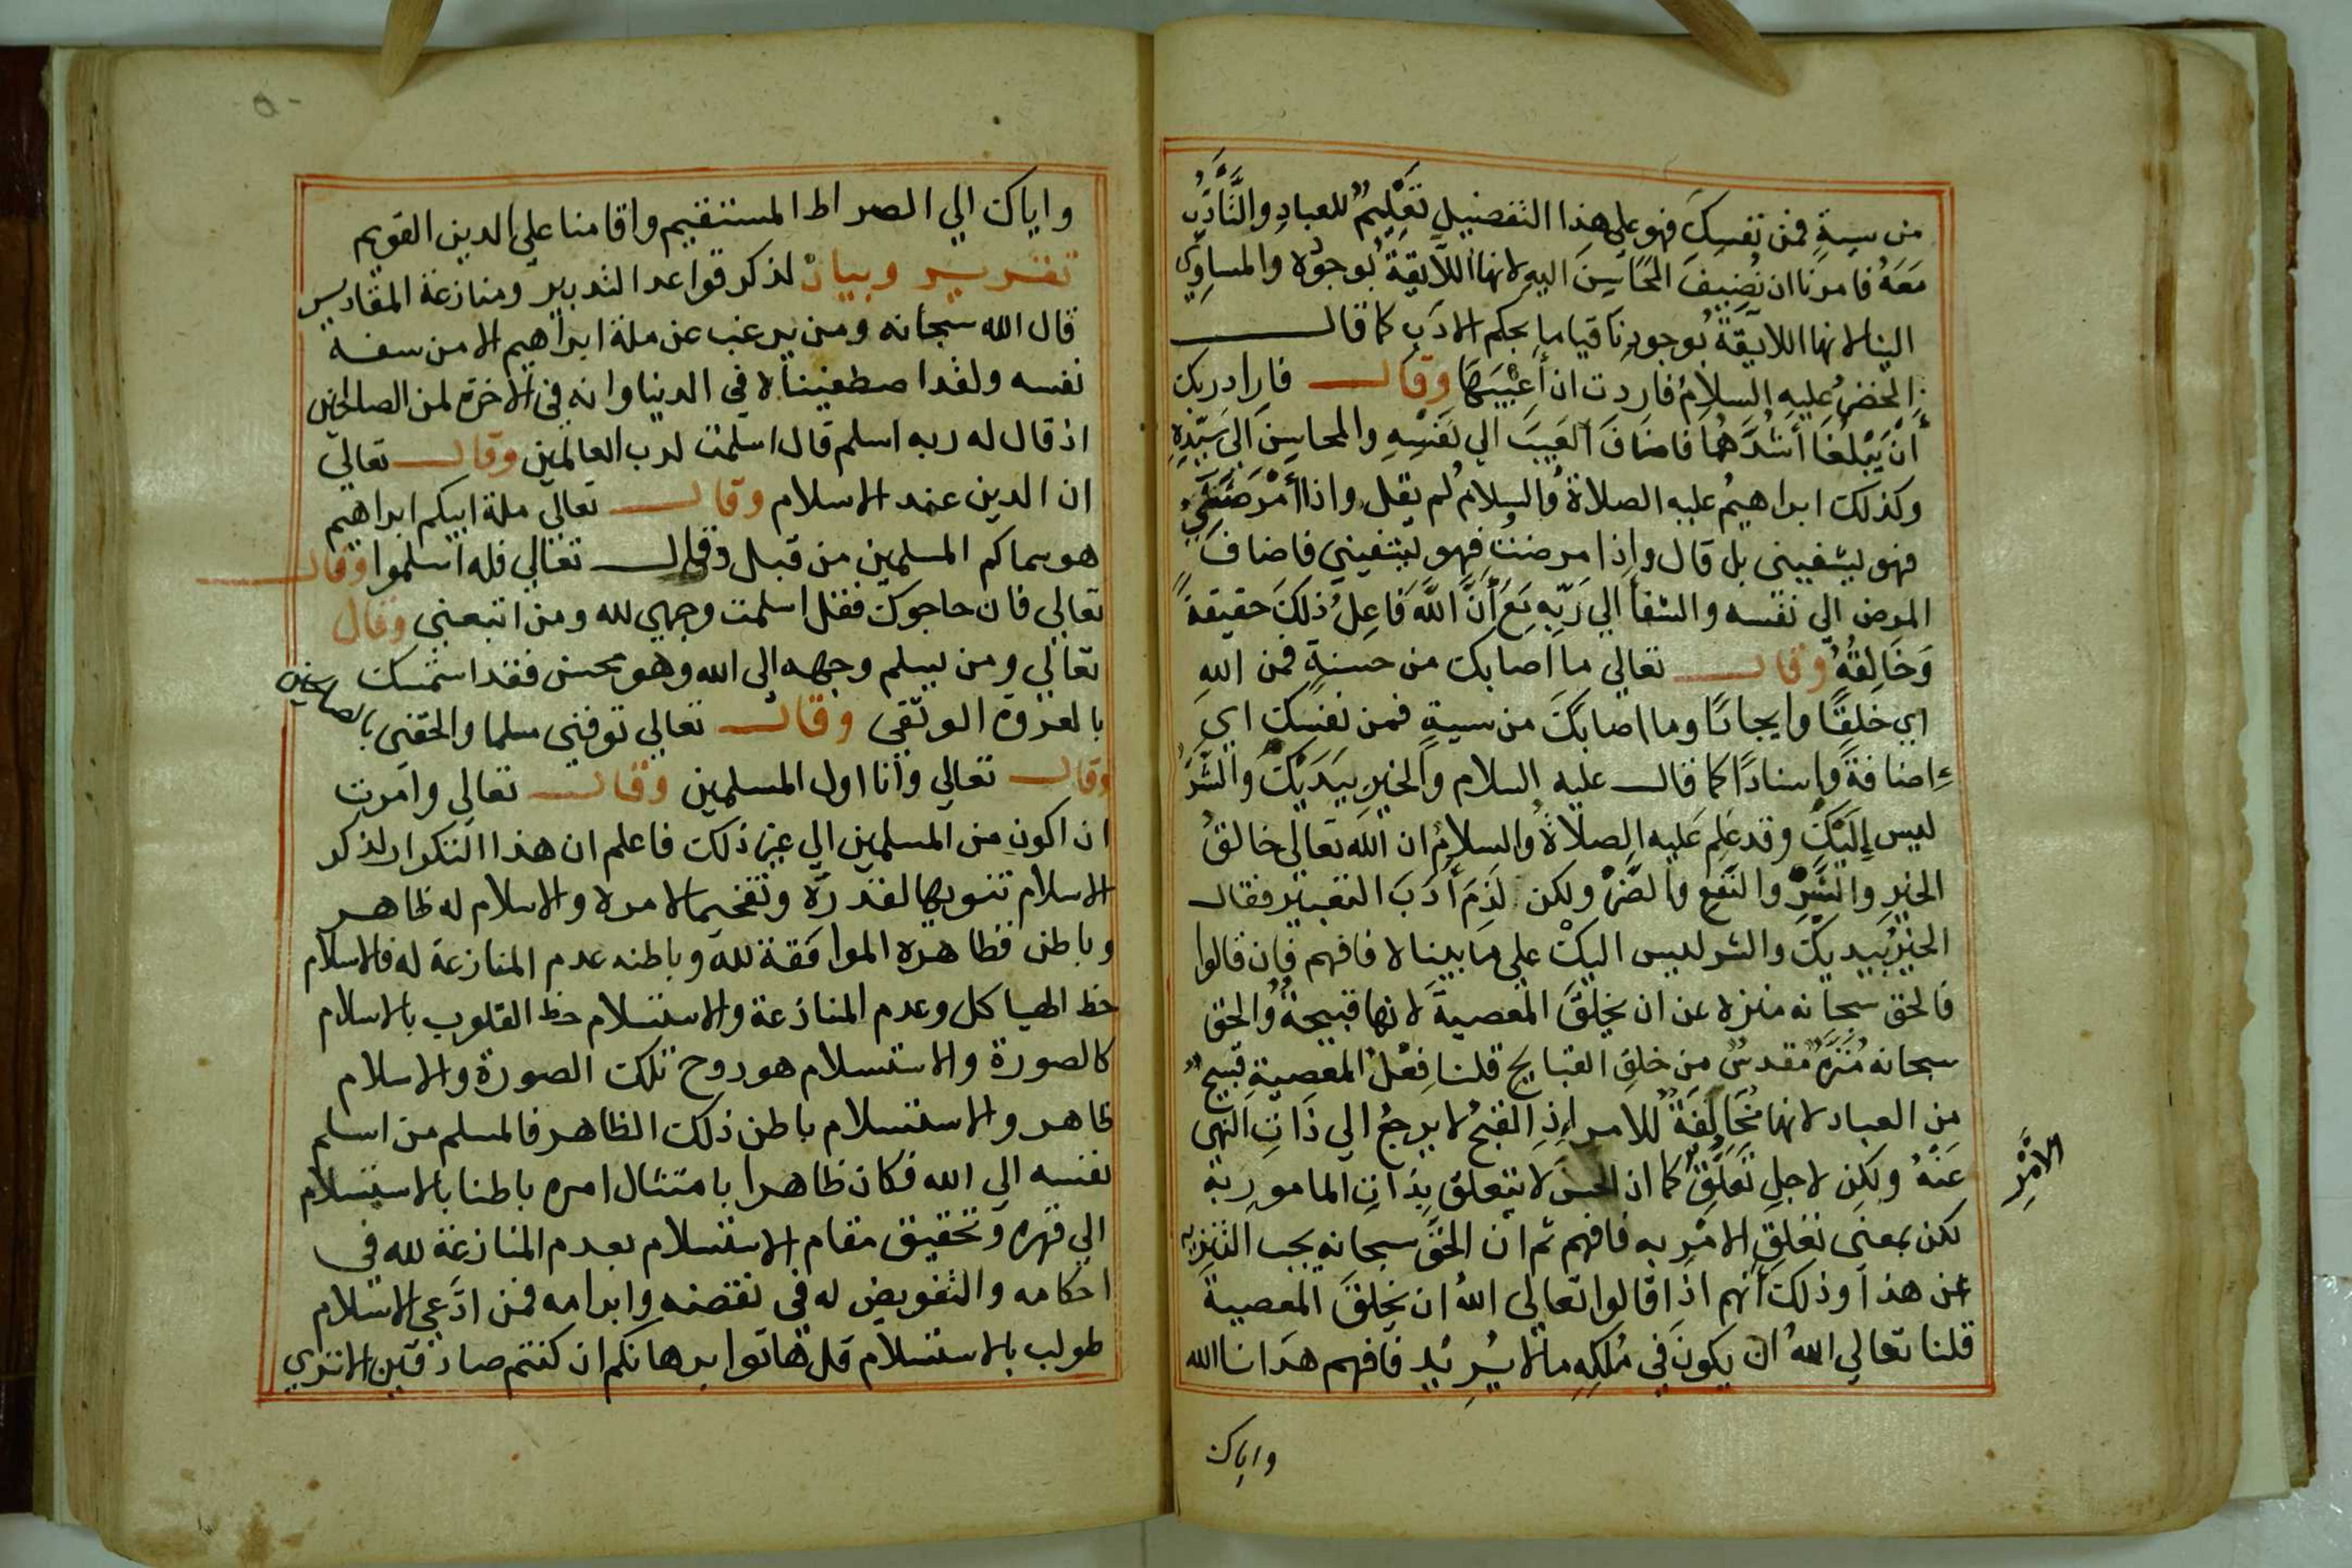 من سيةٍ فمن نفسِكَ فهو على هذا التفصيل تعْليمٌ للعبادِ والتَّأدّبُ
مَعَهُ فامرنا ان نُضِيفَ المَحَاسِنَ اليهِ لانها اللآيقةُ بُوجوُدِه والمساوِي
الينا لانها اللايقةُ بوجودِنَا قياما بحكم الادَبِ كما قالــــ
الخضرُ عليه السلامُ فاردت ان أَعْيبَهَا وقالــــ فاراد ربك
أَنْ يَبْلُغَا أَشُدَّهُمَا فاضافَ العَيبَ الي نَفْسِهِ والمحاسِنَ الى سَيّدِهِ
وكذلك ابراهيمُ عليه الصلاةُ والسلامُ لم يقل واذا أَمْرَضَنِي
فهو يشفيني بل قال واِذا مرضتُ فهو يشفيني فاضافَ
المرض الي نفسه والشفأ الي رَبِّهِ مَعَ أَنَّ اللَّهَ فَاعِلُ ذلكَ حقيقةً
وَخَالِقُهُ وقالــــ تعالي ما اصابك من حسنةٍ فمن اللهِ
اي خلقًا وايجادًا وما اصابكَ من سيةٍ فمن نفسك ايَ
إضافةً وإسنادًا كما قالــ عليه السلام والخيرِ بيَدَيْكَ والشَّرَّ
ليس اِلَيْكَ وقد عَلِمَ عَليه الصلاةُ والسلامُ ان اللَّهَ تعالَى خالقُ
الخيرِ والشَّرِّ والنَّفعِ والضَّرِّ ولكن لَزِمَ أَدَبَ التعبيرِ فقالــ
الخيرُ بيديكَ والشر ليس اليكَ علي مَا بيناه فافهم فإن قالوا
فالحق سبحانه منزه عن ان يخلُقَ المعصيةَ لانها قبيحةٌ والحق
سبحانه مُنَزَّهٌ مُقدسٌ من خلقِ القبايح قلنا فِعْلُ المعصيةِ قبيحٌ
مِن العباد لانها مُخَالِفَةٌ للامرِ إذِ القبحُ لا يرجعُ الي ذَاتِ النَهى
عَنْهُ ولكن لاجلِ تَعَلُّقِ الامْرِ كما ان الحسنَ لا يتعلق بِذَاتِ المامورِ به
لكن بمعنى تعَلقِ الامْرِ به فافهم ثم ان الحقَّ سبحانه يجب التنزيه
عن هذا وذلك أنهم اذِا قالوا تعالى اللهُ ان يخلقَ المعصيةَ
قلنا تعالي اللهُ ان يكونَ في مُلكِهِ مالا يُرِيُد فافهم هدَانا الله
واياك
واياك الي الصراط المستقيم واقامنا علي الدين القويم
تقرير وبيان لذكر قواعد التدبير ومنازعة المقادير
قال الله سبحانه ومن يرغب عن ملة ابراهيم الا من سفه
نفسه ولقد اصطفيناه في الدنيا وانه في الاخرة لمن الصالحين
اذ قال له ربه اسلم قال اسلمت لرب العالمين وقالــــ تعالي
ان الدين عند الاسلام وقالــــ تعالي ملة ابيكم ابراهيم
هو سماكم المسلمين من قبل وقالــــ تعالي فله اسلموا وقالــــ
تعالي فان حاجوك فقل اسلمت وجهي لله ومن اتبعني وقال
تعالي ومن يسلم وجهه الى الله وهو محسن فقد استمسك
بالعروة الوثقى وقالــــ تعالي توفني مسلما والحقني بالصالحين
وقالــــ تعالي وأنا اول المسلمين وقالــــ تعالي وامرت
ان اكون من المسلمين الي غير ذلك فاعلم ان هذا التكرار لذكر
الاسلام تنويها لقدره وتفخيما لامره والاسلام له ظاهر
وباطن فظاهره الموافقة لله وباطنه عدم المنازعة له فالاسلام
حظ الهياكل وعدم المنازعة والاستسلام حظ القلوب بالاسلام
كالصورة والاستسلام هو روح تلك الصورة والاسلام
ظاهر والاستسلام باطن ذلك الظاهر فالمسلم من اسلم
نفسه الي الله فكان ظاهرا بامتثال امره باطنا بالاستسلام
الي قهره وتحقيق مقام الاستسلام بعدم المنازعة لله في
احكامه والتفويض له في نقضه وابرامه فمن ادَّعي الاسلام
طولب بالاستسلام قل هاتوا برهانكم ان كنتم صادقين الا تري